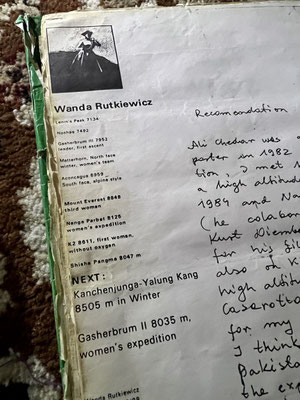 Wanda Rutkiewicz
Lenin's Peak 7134
Noshaq 7492
Gasherbrum III 7952
leader, first ascent
Matterhorn, North face
winter, women's team
Aconcagua 6959
South face, alpine style
Mount Everest 8848
third women
Nanga Parbat 8125
women's expedition
K2 8611, first women,
without oxygen
Shisha Pangma 8047 m
NEXT:
Kanchenjunga-Yalung Kang
8505 m in Winter
Gasherbrum II 8035 m,
women's expedition
Wanda Rutkiewicz
Recomendation
Ali Chedan was
porter in 1982
tion, I met
a high altitude
1984 and Na
(he colabor
Kurt Diemb
for his fil
also on K
high altit
Casarotto
for my
I think
Pakista
the exp